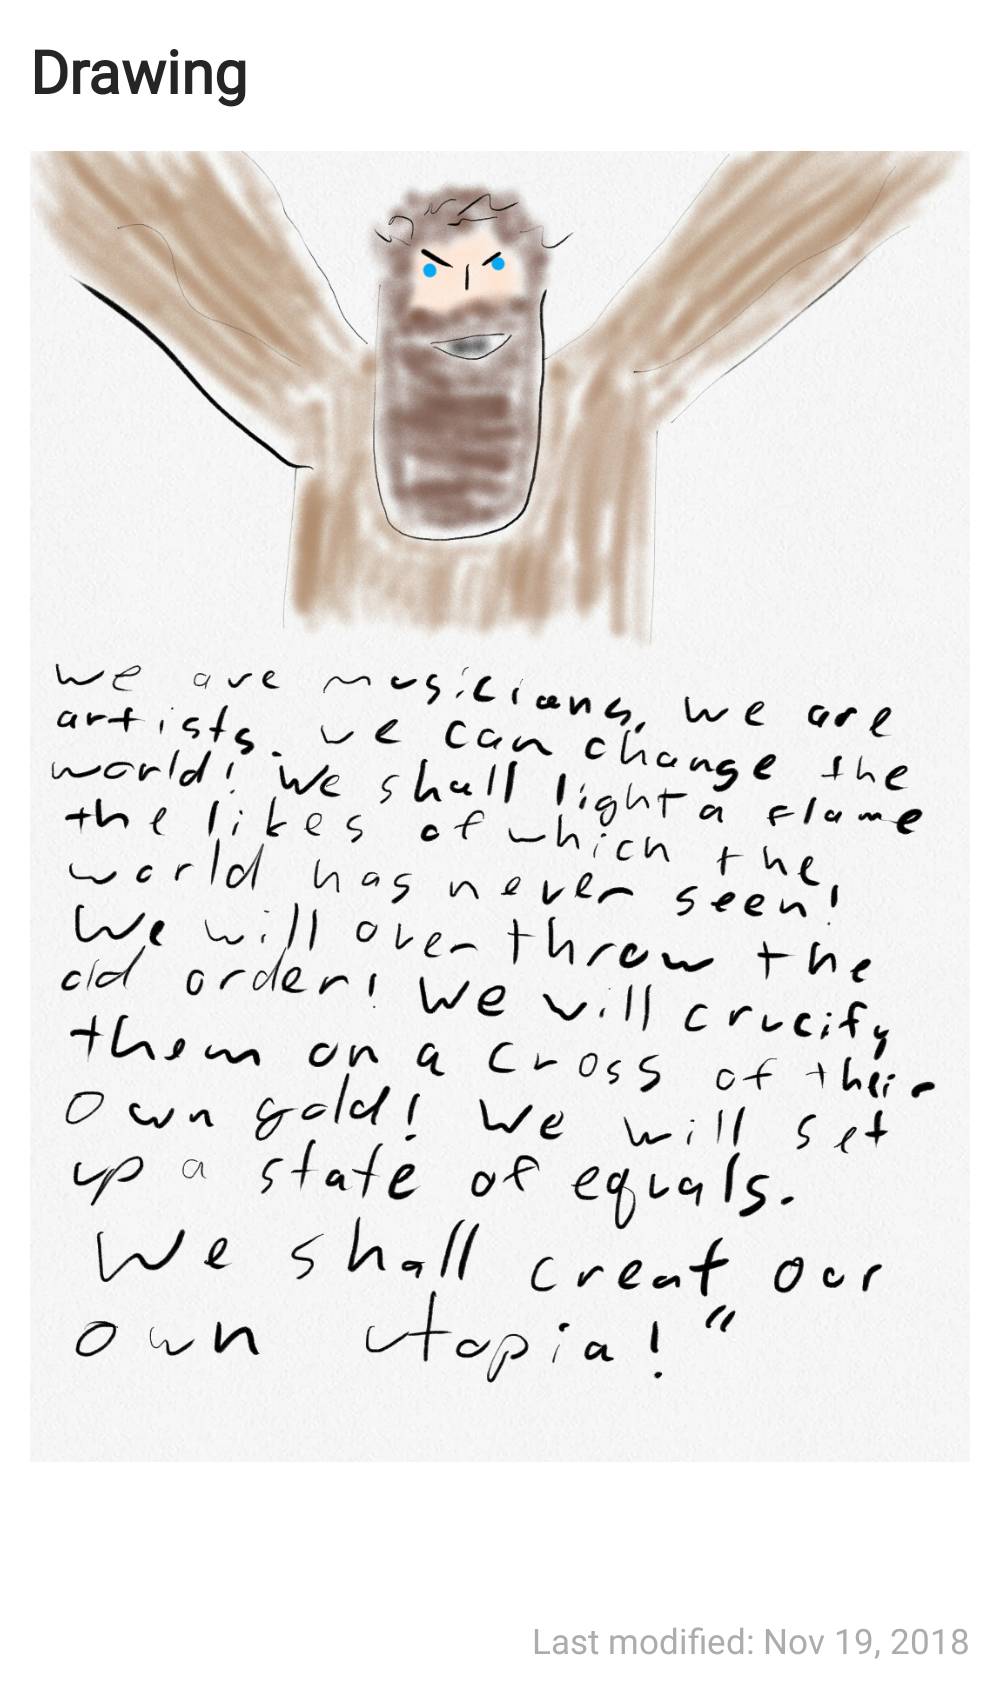 Drawing
We are musicians, we are
artists. We can change the
world! We shall light a flame
the likes of which the
world has never seen!
We will over throw the
old order! We will crucify
them on a cross of their
own gold! We will set
up a state of equals.
We shall creat our
own utopia!"
Last modified: Nov 19, 2018